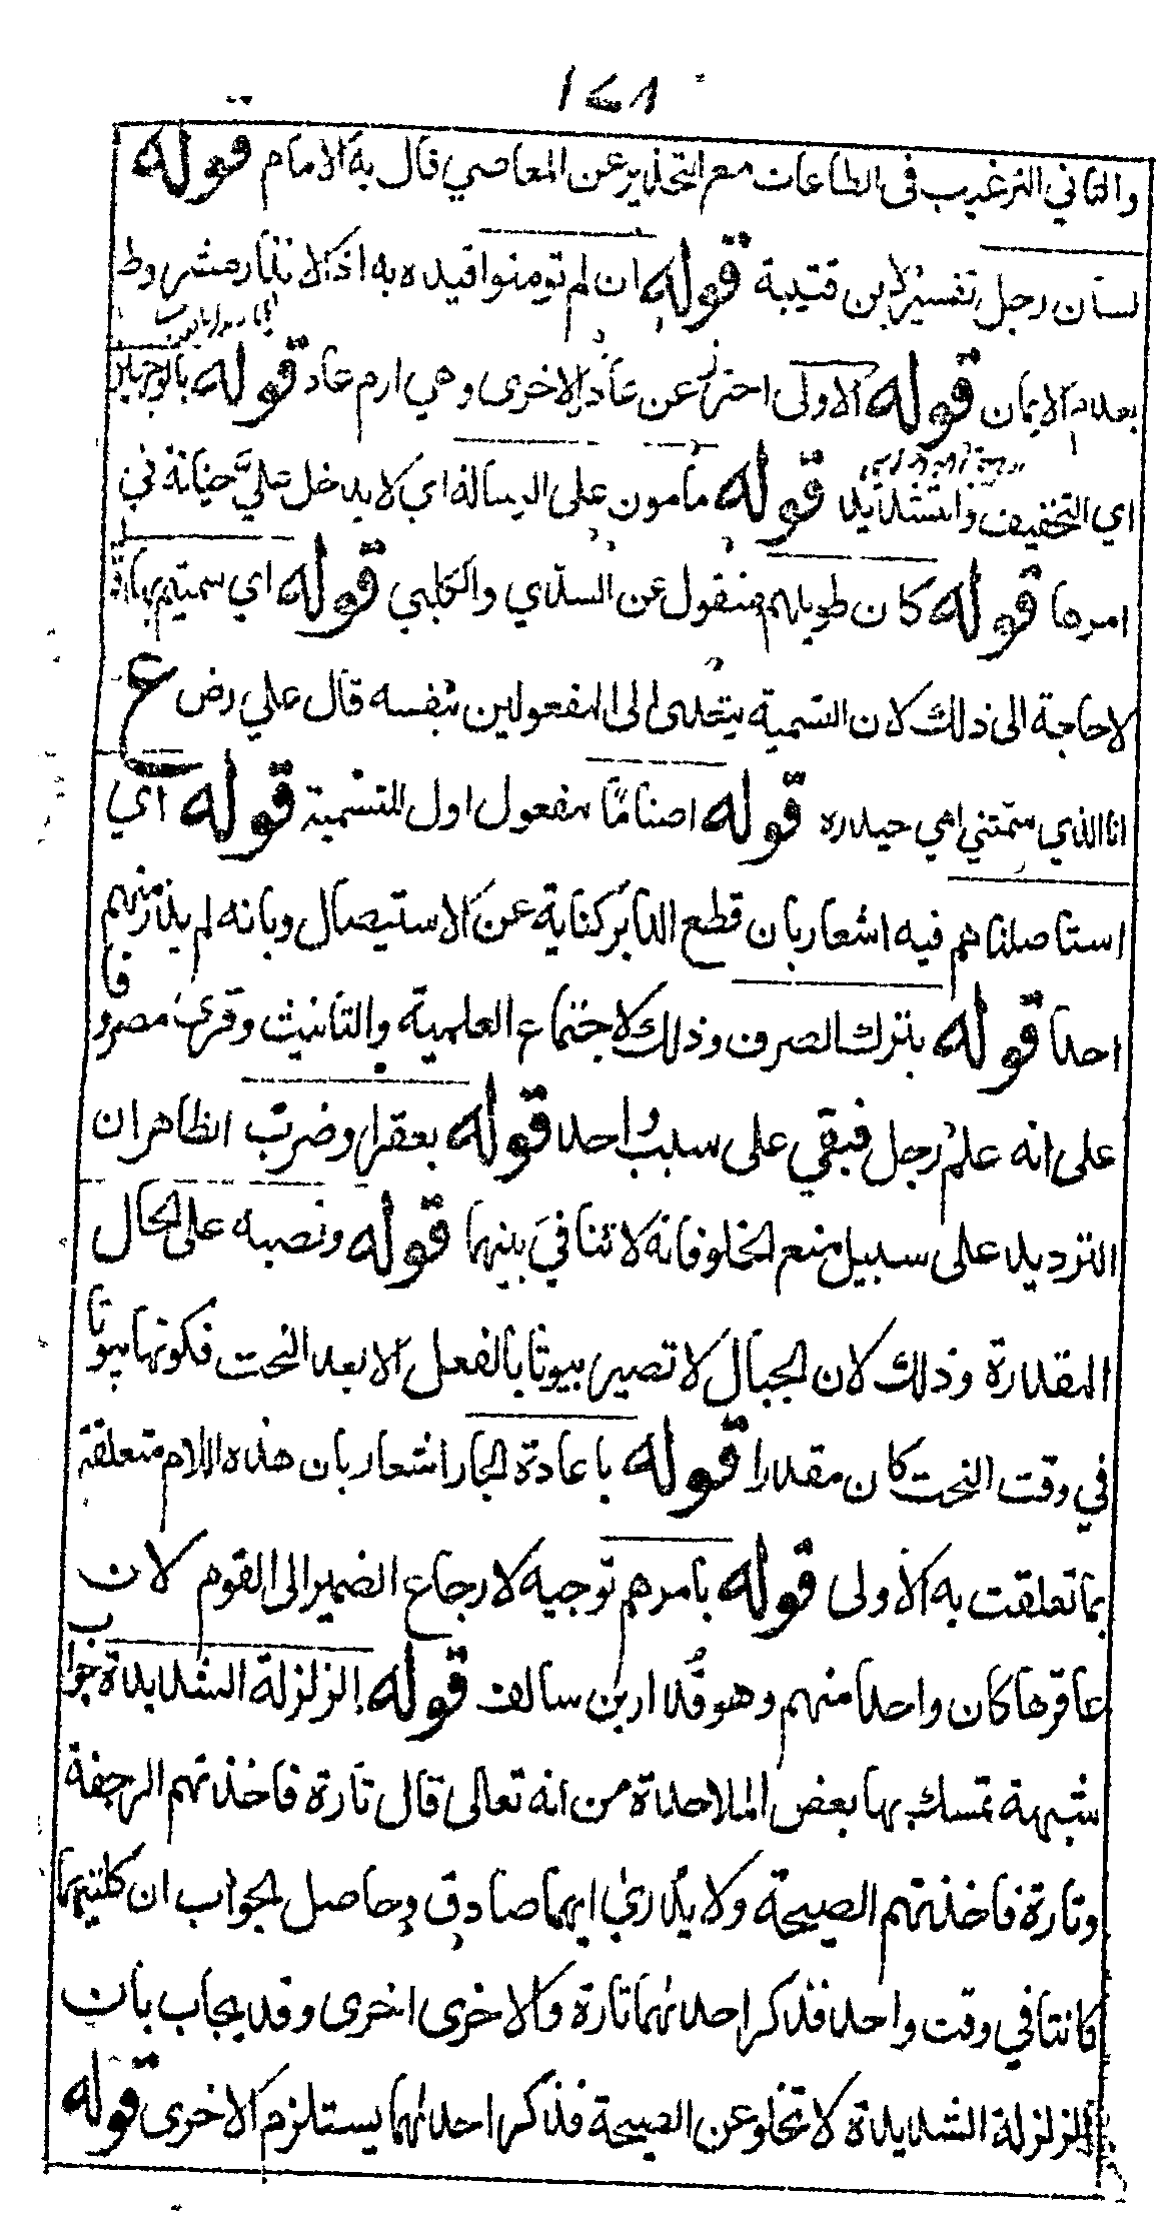 ١٤٨
والثاني الترغيب في الطاعات مع التحذير عن المعاصي قال به الامام قوله
لسان رجل تفسير لابن قتيبة قوله ان لم تومنوا قيده به اذ الانذار مشروط
بعدم الايمان قوله الاولى احتراز عن عاد الاخرى وهي ارم عاد قوله بالوجهين
اي التخفيف والتشديد قوله مامون على الرسالة اي لا يدخل عليّ خيانة في
امرها قوله كان طويلهم منقول عن السدي والكلبي قوله اي سميتم بها
لا حاجة الى ذلك لان التسمية يتعدى الى المفعولين بنفسه قال علي رض ع
انا الذي سمتني امي حيدره قوله اصناما مفعول اول للتسمية قوله اي
استاصلناهم فيه اشعار بان قطع الدابر كناية عن الاستيصال وبانه لم يذر منهم
احدا قوله بترك الصرف وذلك لاجتماع العلمية والتانيث وقرئ مصروفا
على انه علم رجل فبقي على سبب واحد قوله بعقر او ضرب الظاهر ان
الترديد على سبيل منع الخلو فانه لا تنافي بينهما قوله ونصبه على الحال
المقدرة وذلك لان الجبال لا تصير بيوتا بالفعل الا بعد النحت فكونها بيوتا
في وقت النحت كان مقدرا قوله باعادة الجار اشعار بان هذه اللام متعلقة
بما تعلقت به الاولى قوله بامرهم توجيه لارجاع الضمير الى القوم لان
عاقرها كان واحدا منهم وهو قدار بن سالف قوله الزلزلة الشديدة جواب
شبهة تمسك بها بعض الملاحدة من انه تعالى قال تارة فاخذتهم الرجفة
وتارة فاخذتهم الصيحة ولا يدرى ايهما صادق وحاصل الجواب ان كلتيهما
كانتا في وقت واحد فذكر احدىهما تارة والاخرى اخرى وقد يجاب بان
الزلزلة الشديدة لا تخلو عن الصيحة فذكر احدىهما يستلزم الاخرى قوله